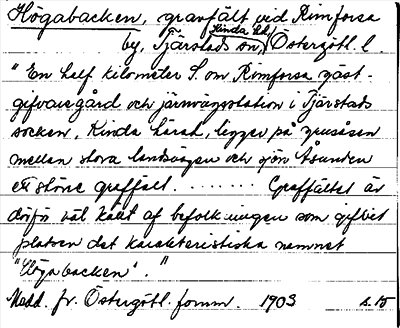 Högabacken, gravfält vid Rimforsa
Kinda hd,
by, Tjärstads sn, Östergötl. l.
"En half kilometer S. om Rimforsa gäst-
gifvaregård och järnvägsstation i Tjärstads
socken, Kinda härad, ligger på grusåsen
mellan stora landsvägen och sjön Åsunden
ett större graffält. ....... Graffältet är
därför väl känt af befolkningen som gifvit
platsen det karakteristiska namnet
"Högabacken"."
Medd. fr. Östergötl. fornm. 1903 s. 15